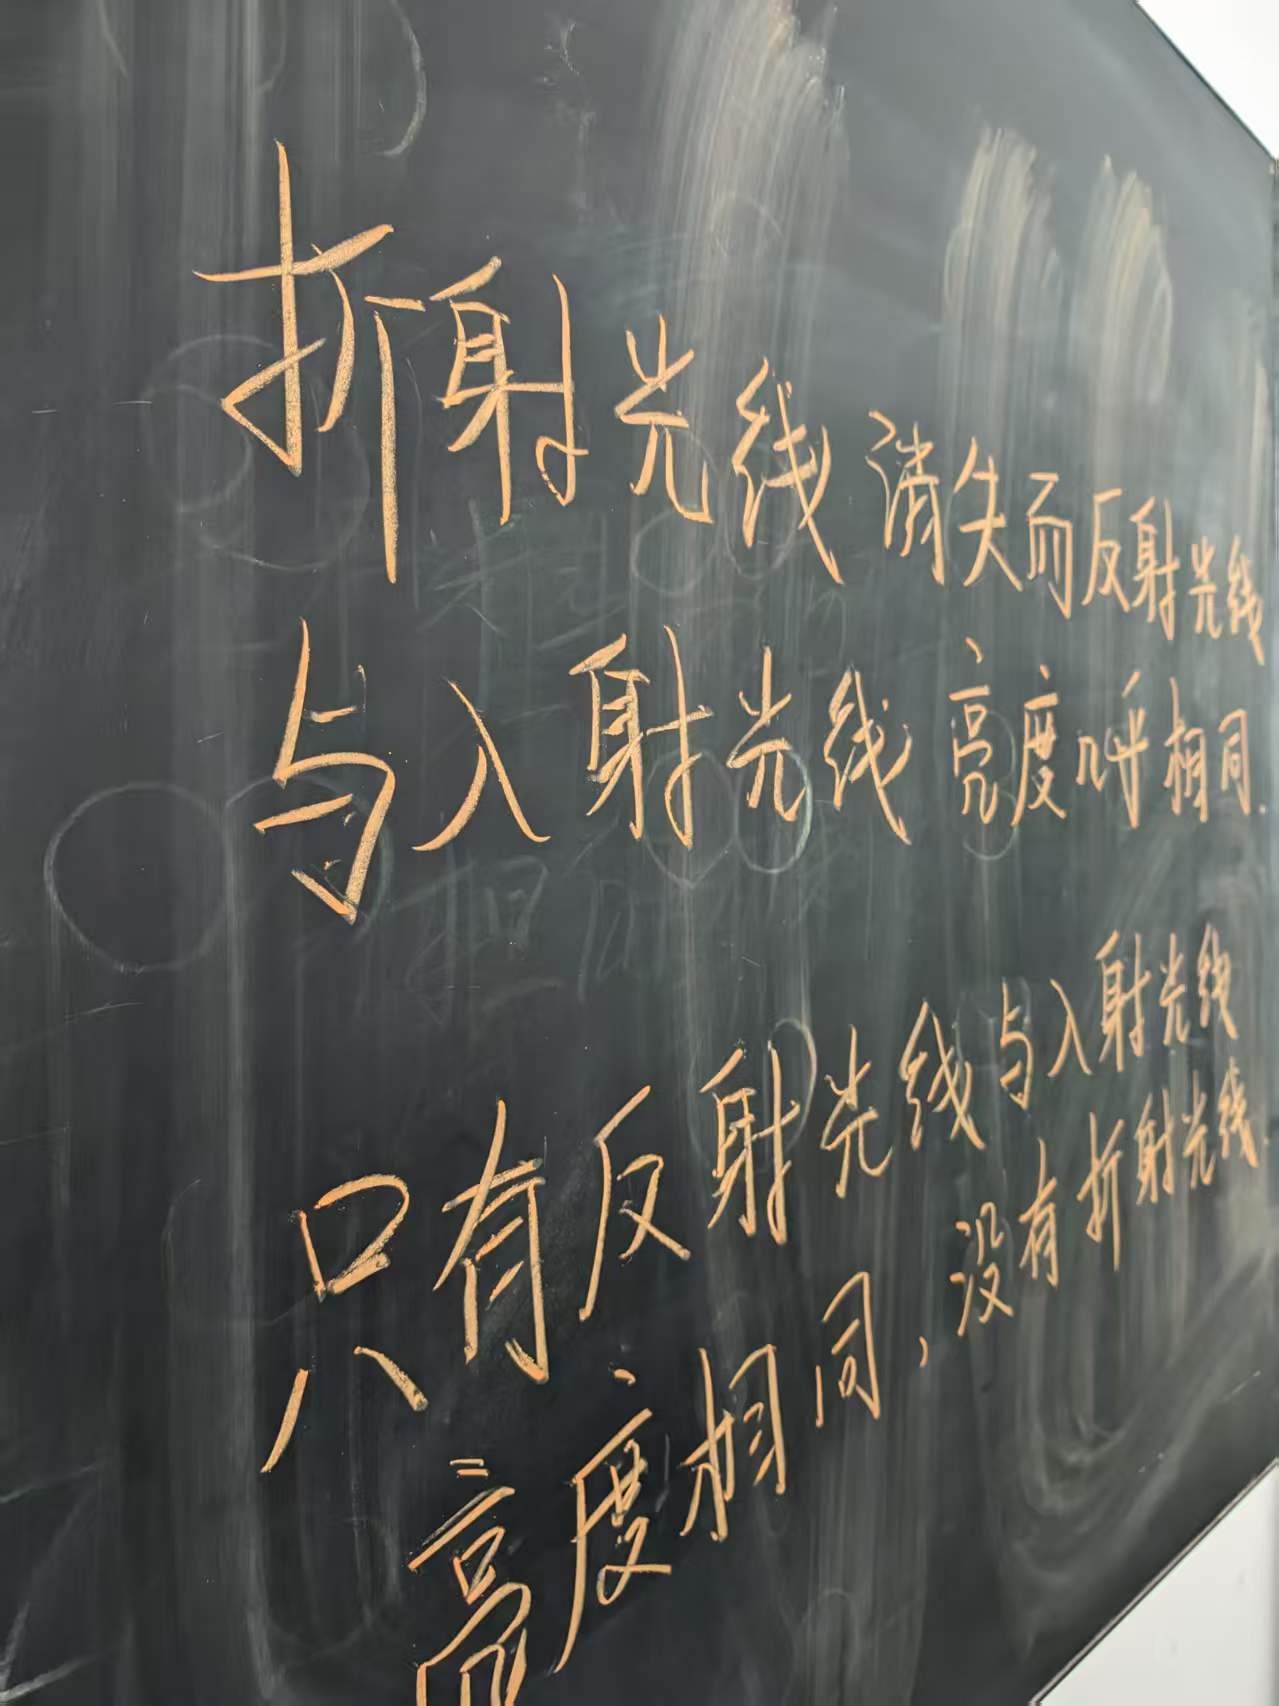 折射光线消失而反射光线
与入射光线亮度几乎相同.
只有反射光线与入射光线
亮度相同,没有折射光线.